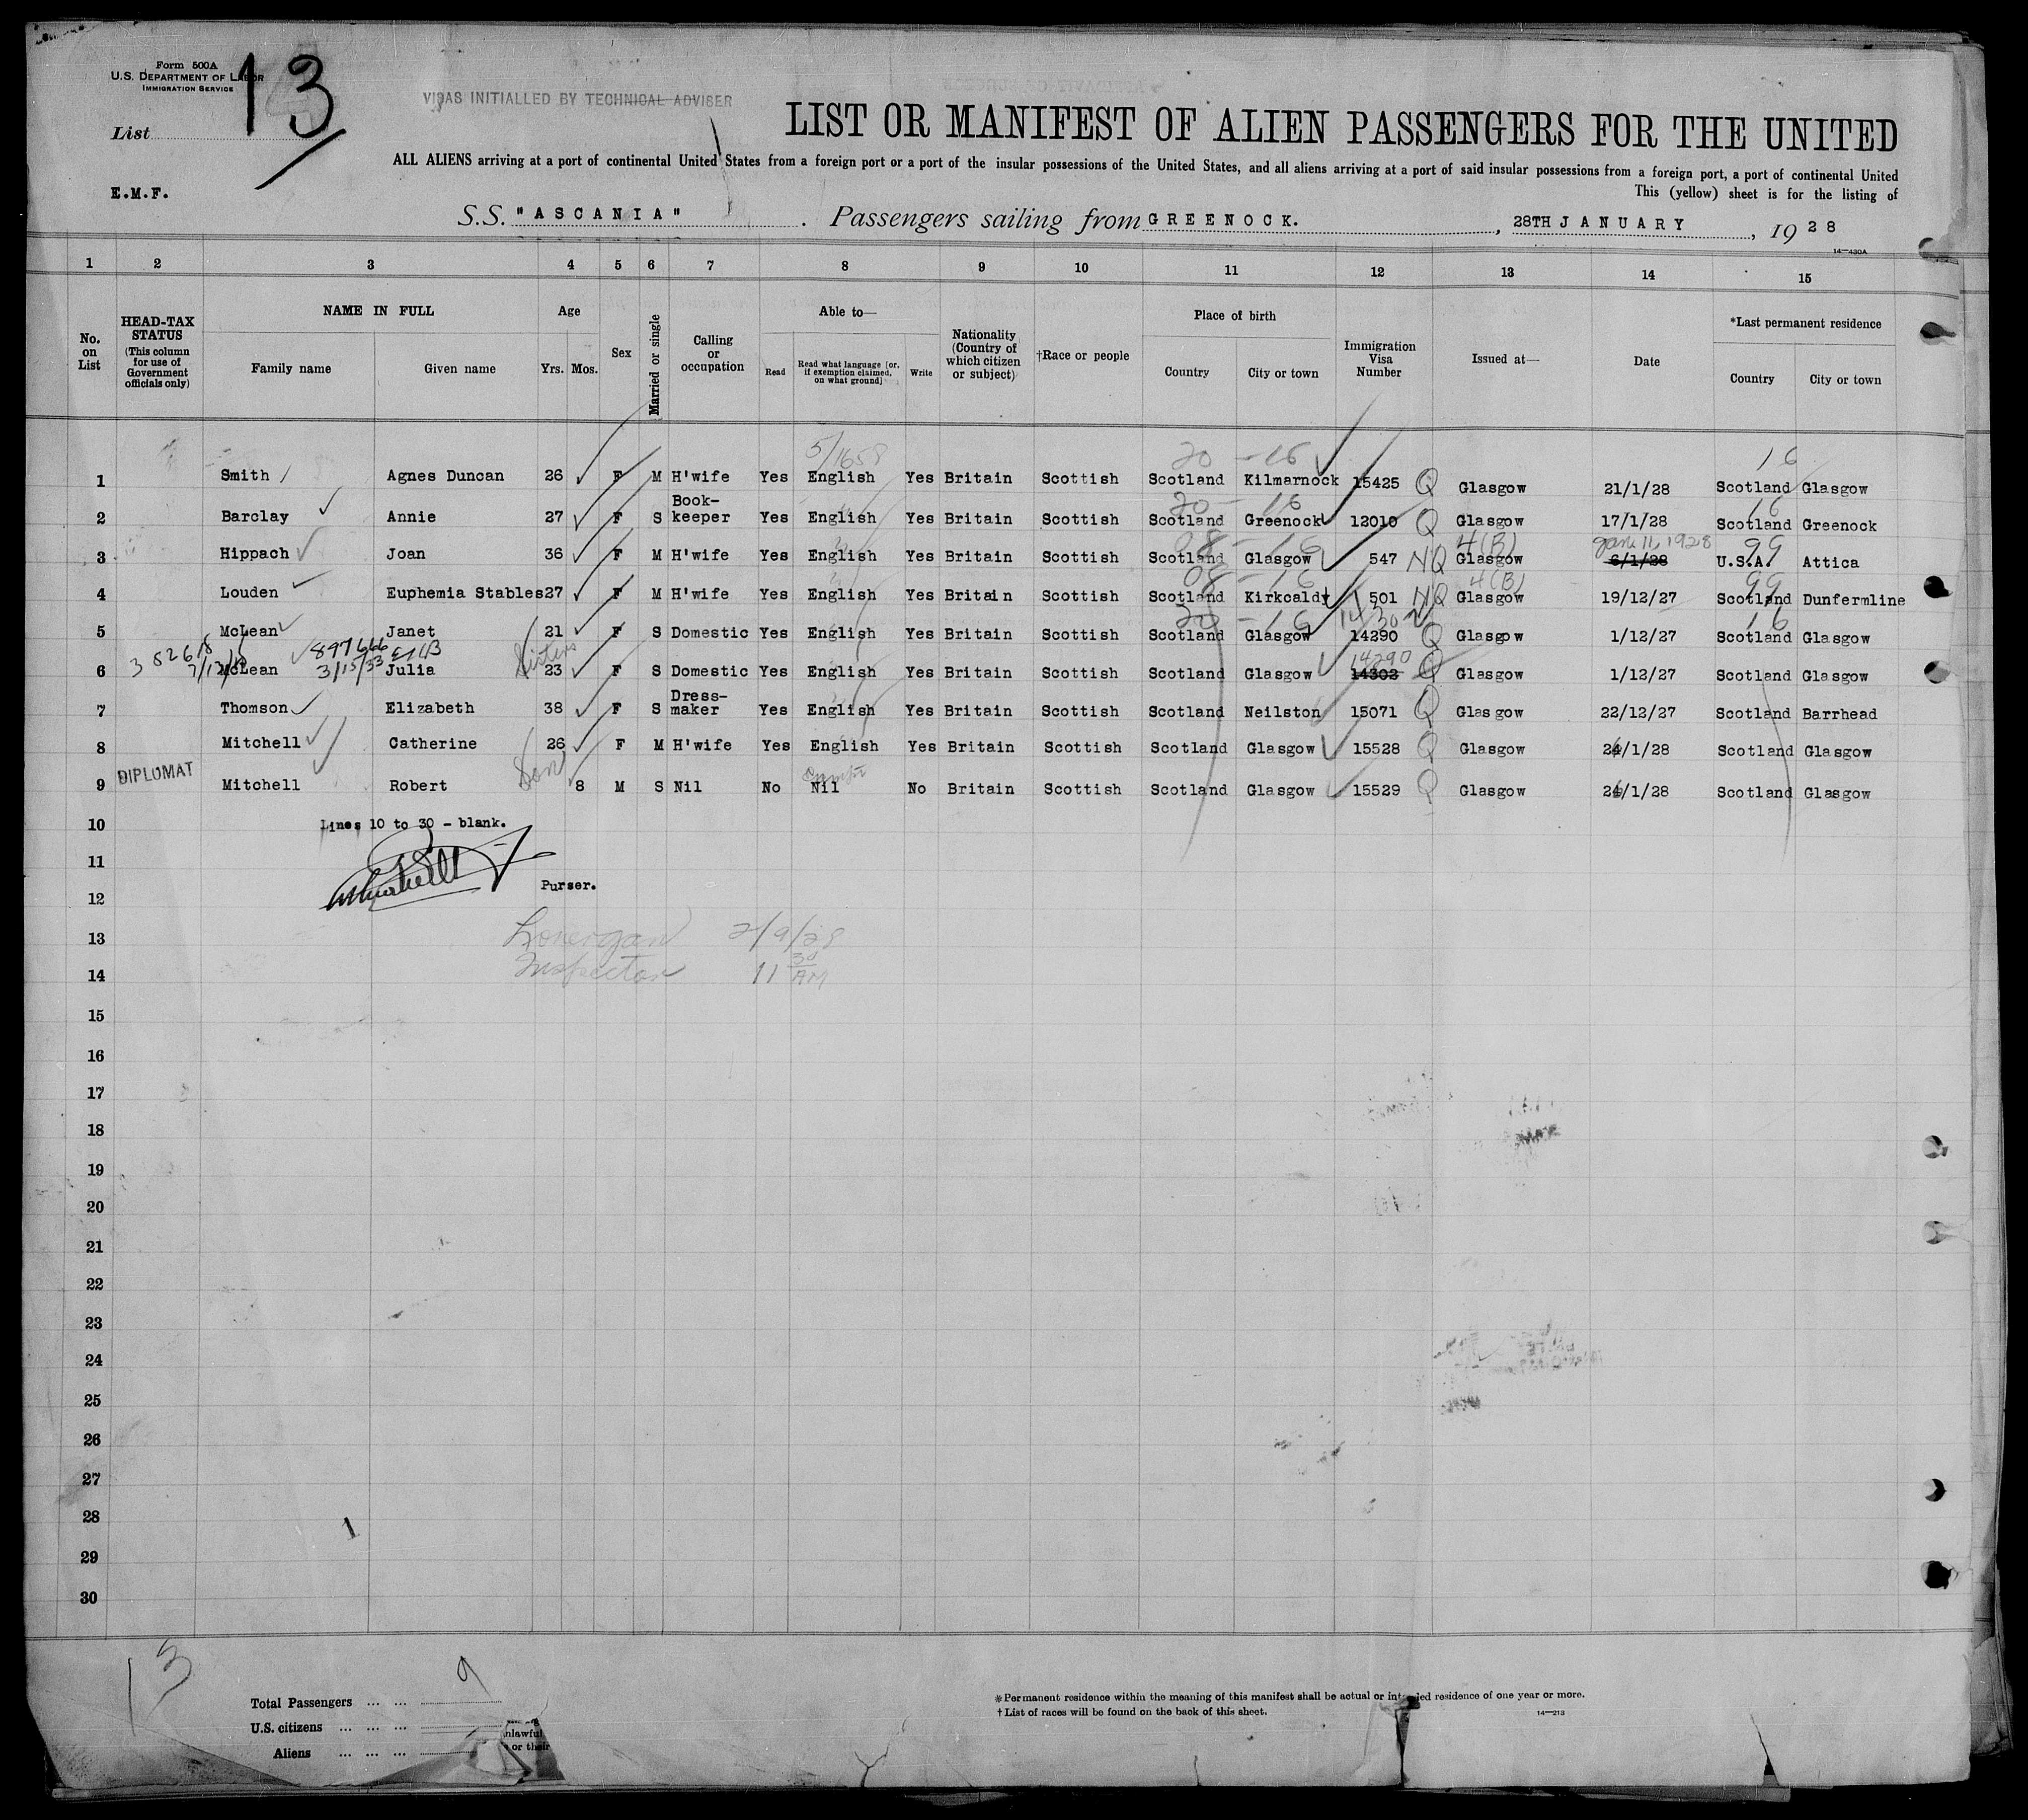 Form 500A
U.S. DEPARTMENT OF LABOR
IMMIGRATION SERVICE
List 13
E.M.F.
VISAS INITIALLED BY TECHNICAL ADVISER
LIST OR MANIFEST OF ALIEN PASSENGERS FOR THE UNITED
ALL ALIENS arriving at a port of continental United States from a foreign port or a port of the insular possessions of the United States, and all aliens arriving at a port of said insular possessions from a foreign port, a port of continental United
This (yellow) sheet is for the listing of
S.S. "ASCANIA". Passengers sailing from GREENOCK., 28TH JANUARY, 1928
14—430A
1 2 3 4 5 6 7 8 9 10 11 12 13 14 15
No. on List
HEAD-TAX STATUS (This column for use of Government officials only)
NAME IN FULL
Family name Given name
Age
Yrs. Mos.
Sex
Married or single
Calling or occupation
Able to—
Read Read what language [or, if exemption claimed, on what ground] Write
Nationality (Country of which citizen or subject)
†Race or people
Place of birth
Country City or town
Immigration Visa Number
Issued at—
Date
*Last permanent residence
Country City or town
5/1658 20 - 16 16
1 Smith Agnes Duncan 26 F M H'wife Yes English Yes Britain Scottish Scotland Kilmarnock 15425 Q Glasgow 21/1/28 Scotland Glasgow
20 - 16 16
2 Barclay Annie 27 F S Book-keeper Yes English Yes Britain Scottish Scotland Greenock 12010 Q Glasgow 17/1/28 Scotland Greenock
08 - 16 4(B) Jan 11, 1928 99
3 Hippach Joan 36 F M H'wife Yes English Yes Britain Scottish Scotland Glasgow 547 NQ Glasgow 6/1/28 U.S.A. Attica
08 - 16 4(B) 99
4 Louden Euphemia Stables 27 F M H'wife Yes English Yes Britain Scottish Scotland Kirkcaldy 501 NQ Glasgow 19/12/27 Scotland Dunfermline
20 - 16 14302 16
5 McLean Janet 21 F S Domestic Yes English Yes Britain Scottish Scotland Glasgow 14290 Q Glasgow 1/12/27 Scotland Glasgow
897666 Sisters 14290
3/15/33
6 McLean Julia 23 F S Domestic Yes English Yes Britain Scottish Scotland Glasgow 14302 Q Glasgow 1/12/27 Scotland Glasgow
7 Thomson Elizabeth 38 F S Dress-maker Yes English Yes Britain Scottish Scotland Neilston 15071 Q Glasgow 22/12/27 Scotland Barrhead
8 Mitchell Catherine 26 F M H'wife Yes English Yes Britain Scottish Scotland Glasgow 15528 Q Glasgow 24/1/28 Scotland Glasgow
DIPLOMAT Son
9 Mitchell Robert 8 M S Nil No Nil No Britain Scottish Scotland Glasgow 15529 Q Glasgow 24/1/28 Scotland Glasgow
10 Lines 10 to 30 - blank.
11
12 Purser.
13 Lonergan 2/9/28
14 Inspector 11 30 AM
15
16
17
18
19
20
21
22
23
24
25
26
27
28
29
30
13
Total Passengers ... ... 9
U.S. citizens ... ... ...
Aliens ... ... ...
nlawful
or their
*Permanent residence within the meaning of this manifest shall be actual or intended residence of one year or more.
†List of races will be found on the back of this sheet.
14—213